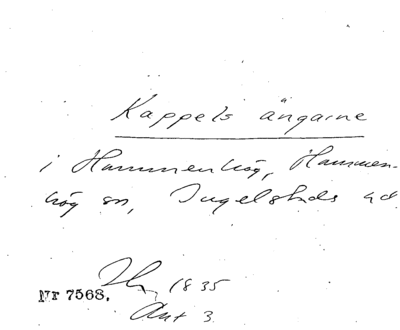 Kappels ängarne
i Hammenhög, Hammen-
hög sn, Ingelstads hd
1835
Nr 7568.
Akt 3.